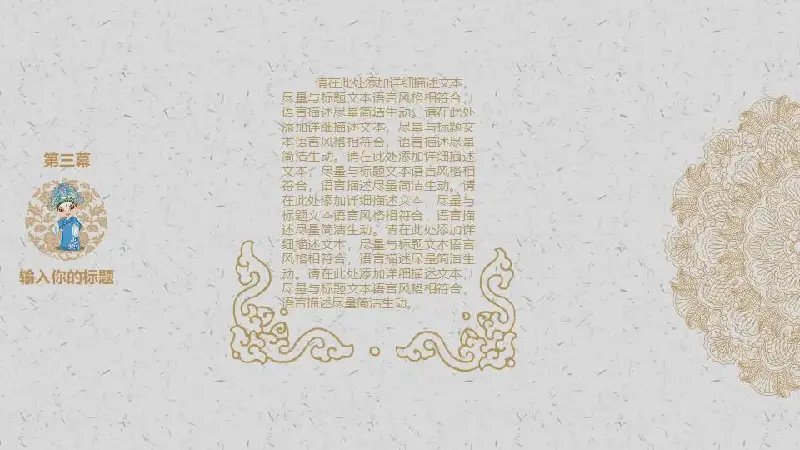 第三幕
输入你的标题
请在此处添加详细描述文本，
尽量与标题文本语言风格相符合，
语言描述尽量简洁生动。请在此处
添加详细描述文本，尽量与标题文
本语言风格相符合，语言描述尽量
简洁生动。请在此处添加详细描述
文本，尽量与标题文本语言风格相
符合，语言描述尽量简洁生动。请
在此处添加详细描述文本，尽量与
标题文本语言风格相符合，语言描
述尽量简洁生动。请在此处添加详
细描述文本，尽量与标题文本语言
风格相符合，语言描述尽量简洁生
动。请在此处添加详细描述文本，
尽量与标题文本语言风格相符合，
语言描述尽量简洁生动。